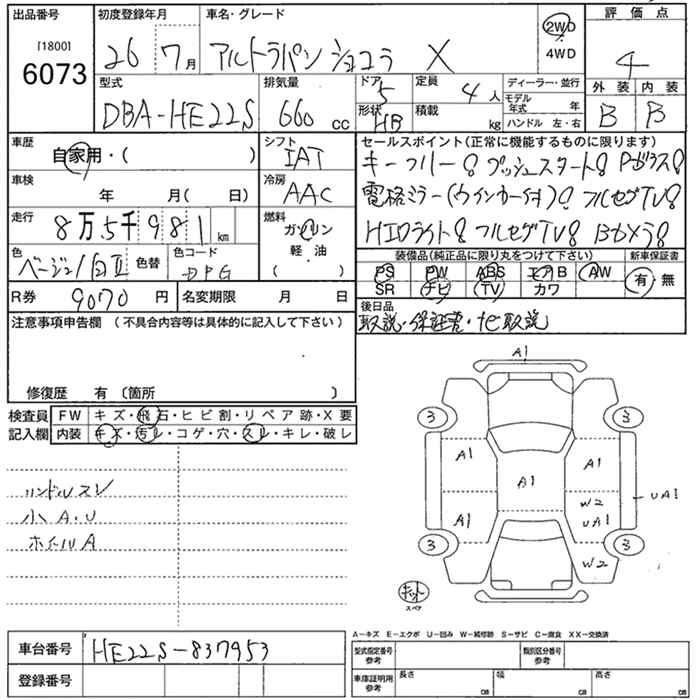 出品番号 初度登録年月 車名・グレード 評価点
[1800]
6073
26 7月 アルトラパン ショコラ X
2WD
・
4WD
4
型式 排気量 ドア 定員 ディーラー・並行 外装 内装
DBA-HE22S 660 cc 5 4人
モデル年式 年
形状 HB 積載 kg ハンドル 左・右 B B
車歴 シフト セールスポイント(正常に機能するものに限ります)
自家用・( ) IAT
キーフリー! プッシュスタート! Pガラス!
車検 年 月( 日) 冷房 AAC
電格ミラー(ウインカー付)! フルセグTV!
走行 8万5千981km 燃料 ガソリン
軽・油
( )
HIDライト! フルセグTV! Bカメラ!
色 ベージュ/白II 色替 色コード ZPG
装備品(純正品に限り丸をつけて下さい) 新車保証書
PS PW ABS エアB AW
SR ナビ TV カワ 有・無
R券 9070円 名変期限 月 日
後日品
取説・保証書・ナビ取説
注意事項申告欄(不具合内容等は具体的に記入して下さい)
修復歴 有 (箇所 )
検査員 FW キズ・飛石・ヒビ割・リペア跡・X要
記入欄 内装 キズ・汚レ・コゲ・穴・スレ・キレ・破レ
A1
3 3
A1 A1 A1
W2
UA1 UA1
A1
3 3
W2
キット
スペア
ハンドルスレ
小A・U
ホイールA
A−キズ E−エクボ U−凹み W−補修跡 S−サビ C−腐食 XX−交換済
車台番号 HE22S-837953
登録番号
型式指定番号 参考 類別区分番号 参考
車庫証明用 参考 長さ cm 幅 cm 高さ cm